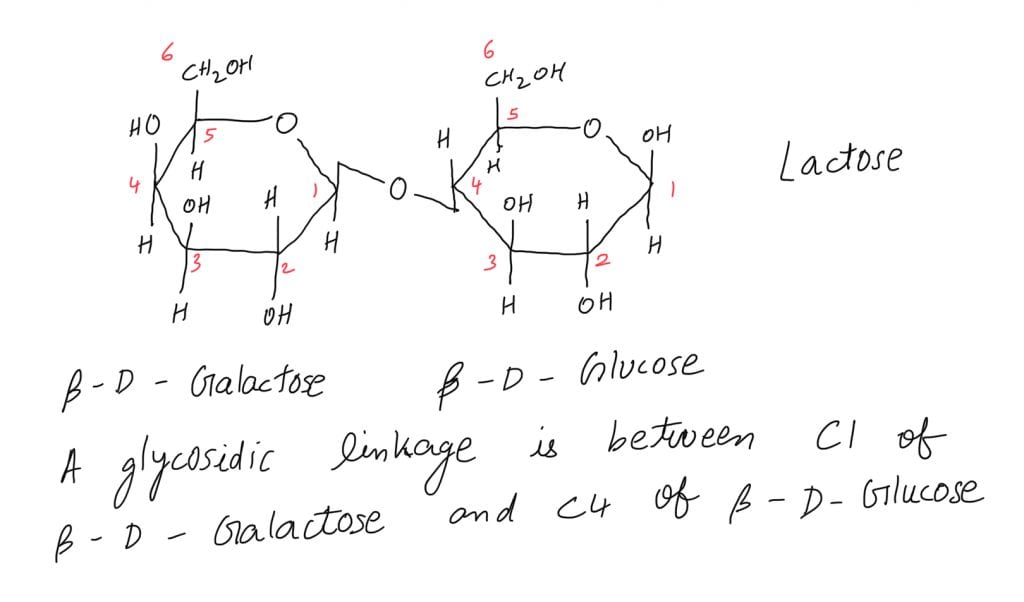 6 6
CH₂OH CH₂OH
HO 5 O H 5 O OH
4 H 1 O 4 H 1
OH H OH H
H 3 2 H 3 2 H
H OH H OH
Lactose
β-D - Galactose β-D - Glucose
A glycosidic linkage is between C1 of
β-D - Galactose and C4 of β-D-Glucose